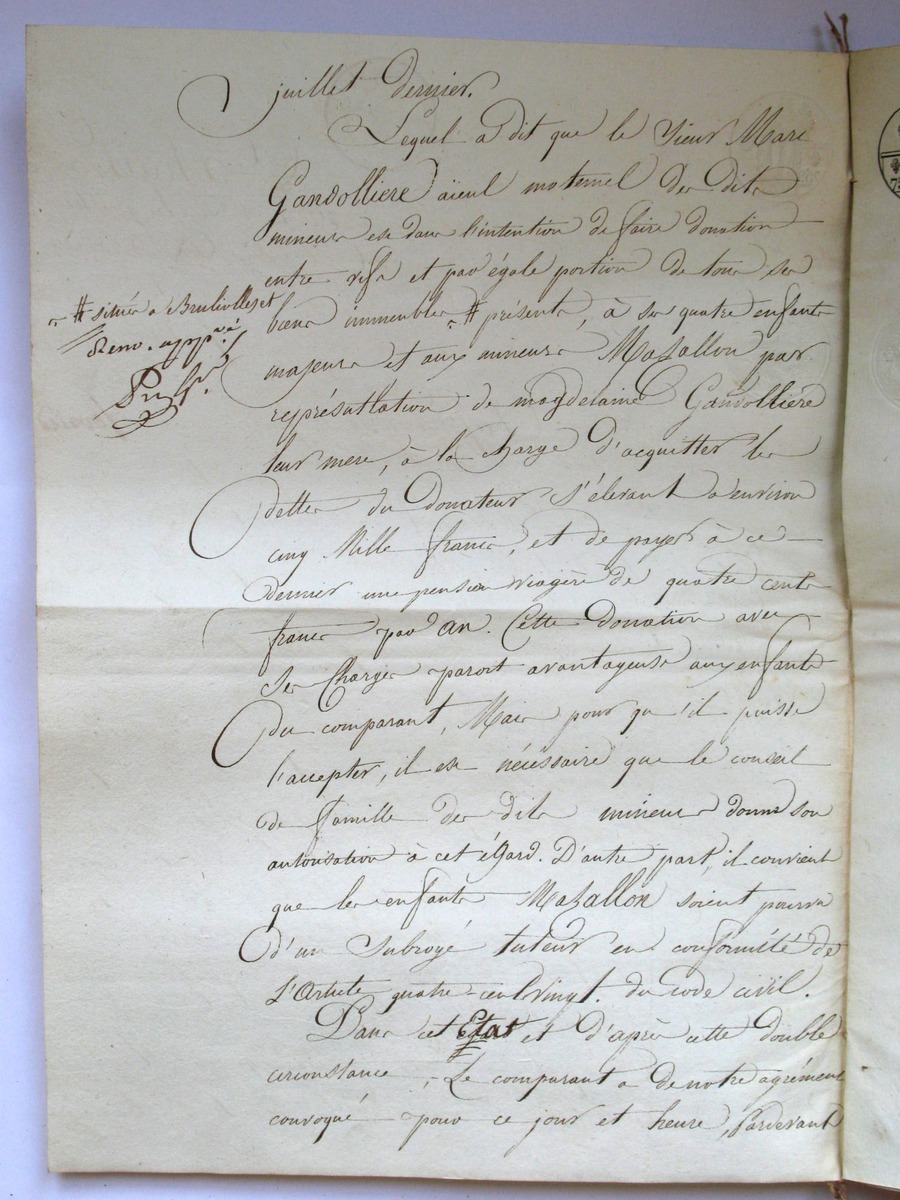 juillet dernier.
Lequel a dit que le sieur Marc
Gandollière aïeul maternel des dits
mineurs est dans l'intention de faire donation
entre vifs et par égale portion de tous ses
biens immeubles # présents, à ses quatre enfants
# situés a Brullioles et
Renv. app.é
majeurs et aux mineurs Mazallon par
représentation de magdelaine Gandollière
leur mere, à la charge d'acquitter les
dettes du Donateur s'élevant a environ
cinq Mille francs, et de payer à ce
dernier une pension viagère de quatre cents
francs par an. Cette Donation avec
ses Charges paroit avantageuse aux enfants
du comparant, Mais pour qu'il puisse
l'accepter, il est nécéssaire que le conseil
de famille des dits mineurs donne son
autorisation à cet égard. D'autre part, il convient
que les enfants Mazallon soient pourvus
d'un subrogé tuteur en conformité de
L'Article quatre-cent vingt. du code civil.
Dans cet Etat et d'après cette double
circonstance, Le comparant a de notre agrément
convoqué pour ce jour et heure, Pardevant